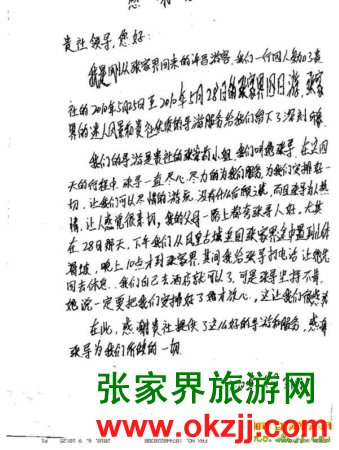 贵社领导,您好:
我是刚从张家界回来的 游客。我们一行四人参加了贵
社的2010年5月25日至2010年5月28日的张家界四日游,张家
界的迷人风景和贵社优质的导游服务给我们留下了深刻印象
我们的导游是贵社的 小姐,我们叫她张导。在这四
天的行程中,张导一直尽心尽力的为我们服务,为我们安排好一
切,让我们可以尽情的游玩,没有什么后顾之忧,而且张导为人热
情,让人感觉很亲切。我的父母一路上都夸张导人好,尤其
在28日那天,下午我们从凤凰古城返回张家界途中遇到山体
滑坡,晚上10点才到张家界,其间我给张导打电话,让她先
回去休息,我们自己去酒店就可以了,可是张导坚持不肯,
她说一定要把我们安排好了她才放心,这让我们很感动
在此,感谢贵社提供了这么好的导游和服务,感谢
张导为我们所做的一切。
张家界旅游网
www.okzjj.com